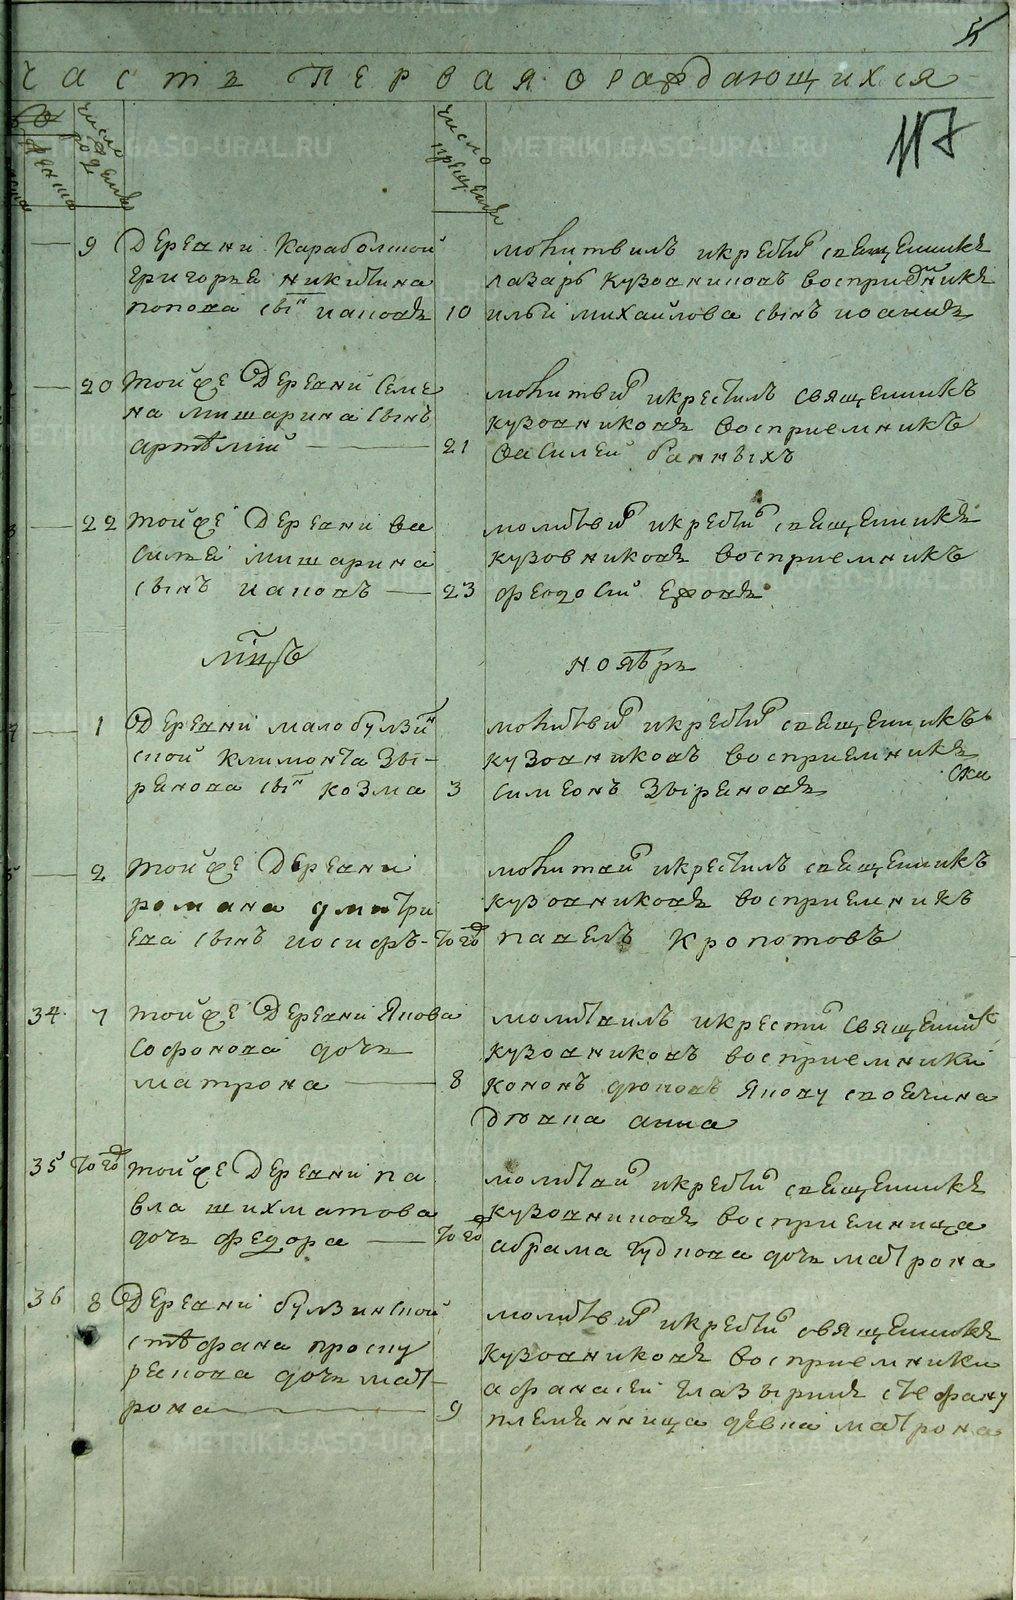 5
Часть Первая о раждающихся
117
число рожденiя
число крещенiя
9 Деревни Караболской
григорья никитина
попова сынъ iаковъ 10
молитвилъ икрестил свещенникъ
лазарь кузовниковъ восприемникъ
ильи михаилова сынъ иоаннъ
20 тойже Деревни Семе
на мишарина сынъ
артѣмiй 21
молитвил икрестилъ священникъ
кузовниковъ восприемникъ
василей банныхъ
22 тойже Деревни ва
силья мишарина
сынъ iаковъ 23
молитвил икрестил свещенникъ
кузовниковъ восприемникъ
феодосiй Ежовъ
мцъ ноябрь
1 Деревни малобулзин
ской климонта Звi
рянова сын козма 3
молитвил икрестил свещенникъ
кузовниковъ восприемникъ
симеонъ Звiряновъ
2 тойже Деревни
романа дмитри
ева сынъ иосифъ того
молитвил икрестилъ свещенникъ
кузовниковъ восприемникъ
павелъ Кропотовъ
34 7 тойже Деревни Якова
Софонова дочь
матрона 8
молитвилъ икрестил священник
кузовниковъ восприемники
кононъ Якову своячина
анна
35 того тойже Деревни па
вла шихматова
дочь федора того
молитвил икрестил свещенникъ
кузовниковъ восприемница
абрама дочь матрона
36 8 Деревни булзинской
стѣфана проску
рекова дочь мат
рона 9
молитвил икрестил священникъ
кузовниковъ восприемники
афанасей глазыринъ стефану
племянница дѣвка матрона